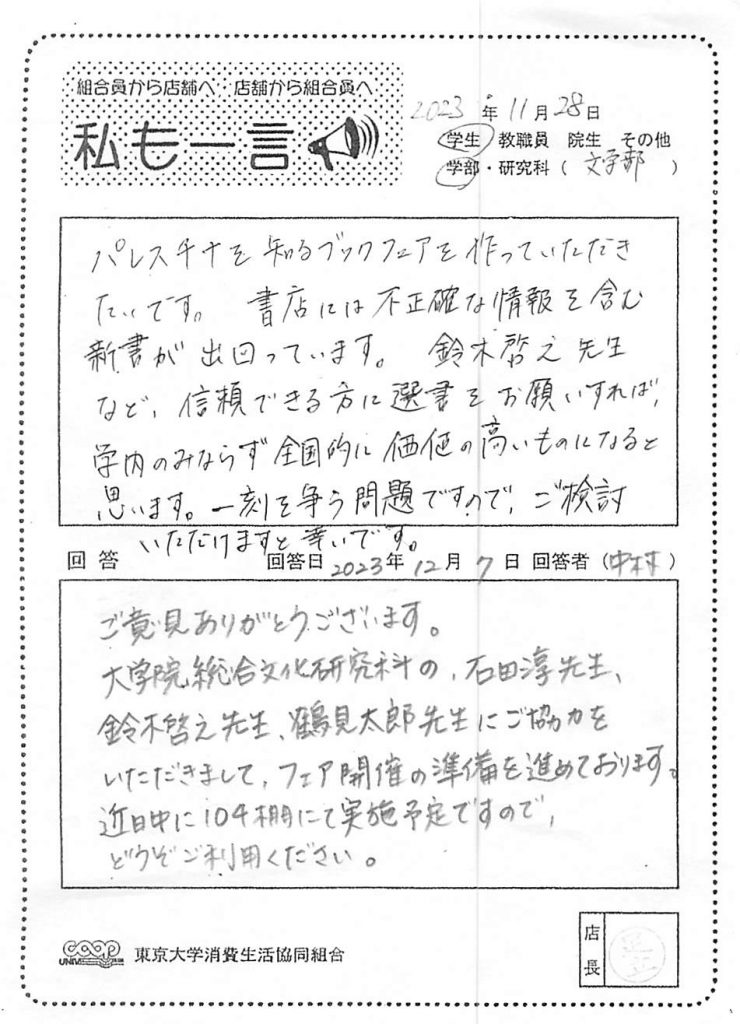 組合員から店舗へ 店舗から組合員へ
私も一言
2023年11月28日
学生 教職員 院生 その他
学部・研究科(文学部)
パレスチナを知るブックフェアを作っていただき
たいです。 書店には不正確な情報を含む
新書が出回っています。 鈴木啓之先生
など、信頼できる方に選書をお願いすれば、
学内のみならず全国的に価値の高いものになると
思います。一刻を争う問題ですので、ご検討
いただけますと幸いです。
回答 回答日 2023年12月7日 回答者(中村)
ご意見ありがとうございます。
大学院総合文化研究科の、石田淳先生、
鈴木啓之先生、鶴見太郎先生にご協力を
いただきまして、フェア開催の準備を進めております。
近日中に104棚にて実施予定ですので、
どうぞご利用ください。
coop
UNIV.
東京大学消費生活協同組合
店長